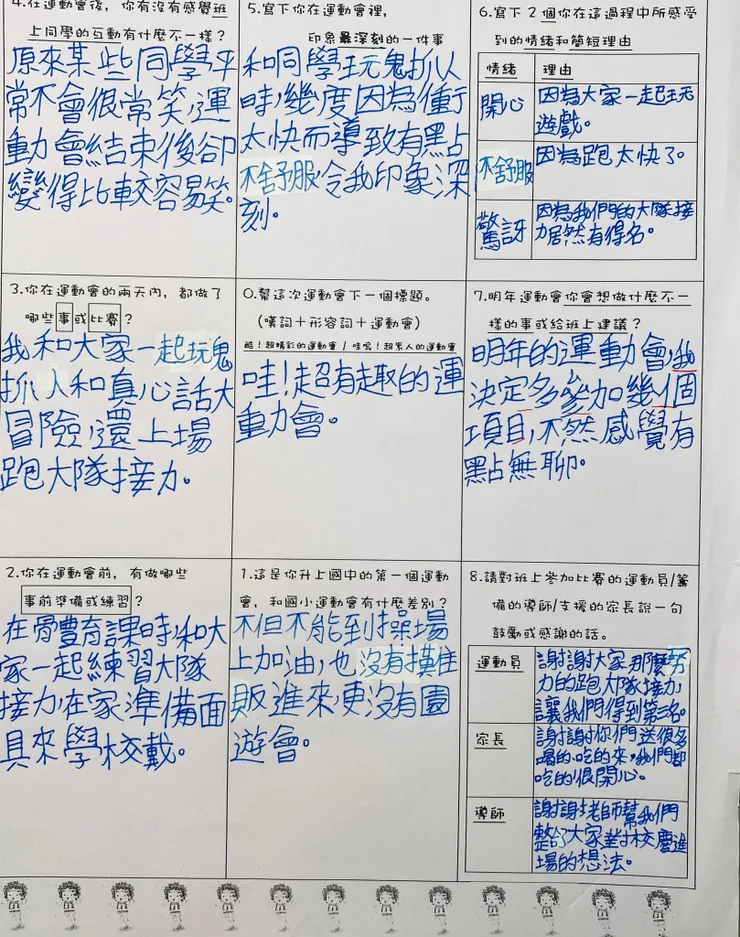 4.在運動會後，你有沒有感覺班
上同學的互動有什麼不一樣？
原來某些同學平
常不會很常笑，運
動會結束後卻
變得比較容易笑。
5.寫下你在運動會裡，
印象最深刻的一件事
和同學玩鬼抓人
時，幾度因為衝
太快而導致有點
不舒服，令我印象深
刻。
6.寫下 2 個你在這過程中所感受
到的情緒和簡短理由
情緒 理由
開心 因為大家一起玩
遊戲。
不舒服 因為跑太快了。
驚訝 因為我們的大隊接
力居然有得名。
3.你在運動會的兩天內，都做了
哪些事或比賽？
我和大家一起玩鬼
抓人和真心話大
冒險，還上場
跑大隊接力。
0.幫這次運動會下一個標題。
(嘆詞＋形容詞＋運動會)
酷！超精彩的運動會 / 哇嗚！超累人的運動會
哇！超有趣的運
動會。
7.明年運動會你會想做什麼不一
樣的事或給班上建議？
明年的運動會，我
決定多參加幾個
項目，不然感覺有
點無聊。
2.你在運動會前，有做哪些
事前準備或練習？
在體育課時，和大
家一起練習大隊
接力，在家準備面
具來學校戴。
1.這是你升上國中的第一個運動
會，和國小運動會有什麼差別？
不但不能到操場
上加油，也沒有攤
販進來，更沒有園
遊會。
8.請對班上參加比賽的運動員/籌
備的導師/支援的家長說一句
鼓勵或感謝的話。
運動員 謝謝大家那麼努
力的跑大隊接力，
讓我們得到第三名。
家長 謝謝你們送很多
喝的、吃的來，我們都
吃的很開心。
導師 謝謝老師幫我們
整合大家對校慶進
場的想法。